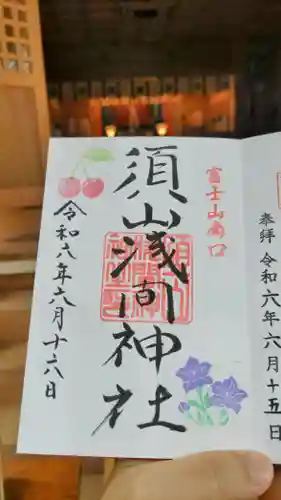 奉拝 令和六年六月十五日
富士山南口
須山浅間神社
令和六年六月十六日